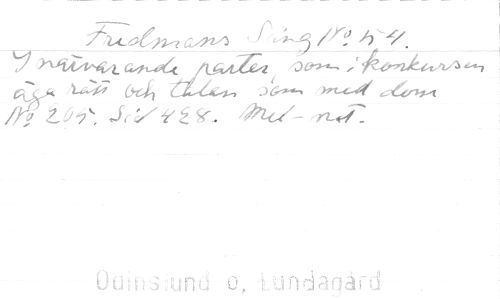 Fredmans Sång No. 54.
I närvarande parter, som i konkursen
äga rätt och talan som med dom
No 205. Sid 428. Mel-not.
Odinslund o, Lundagård